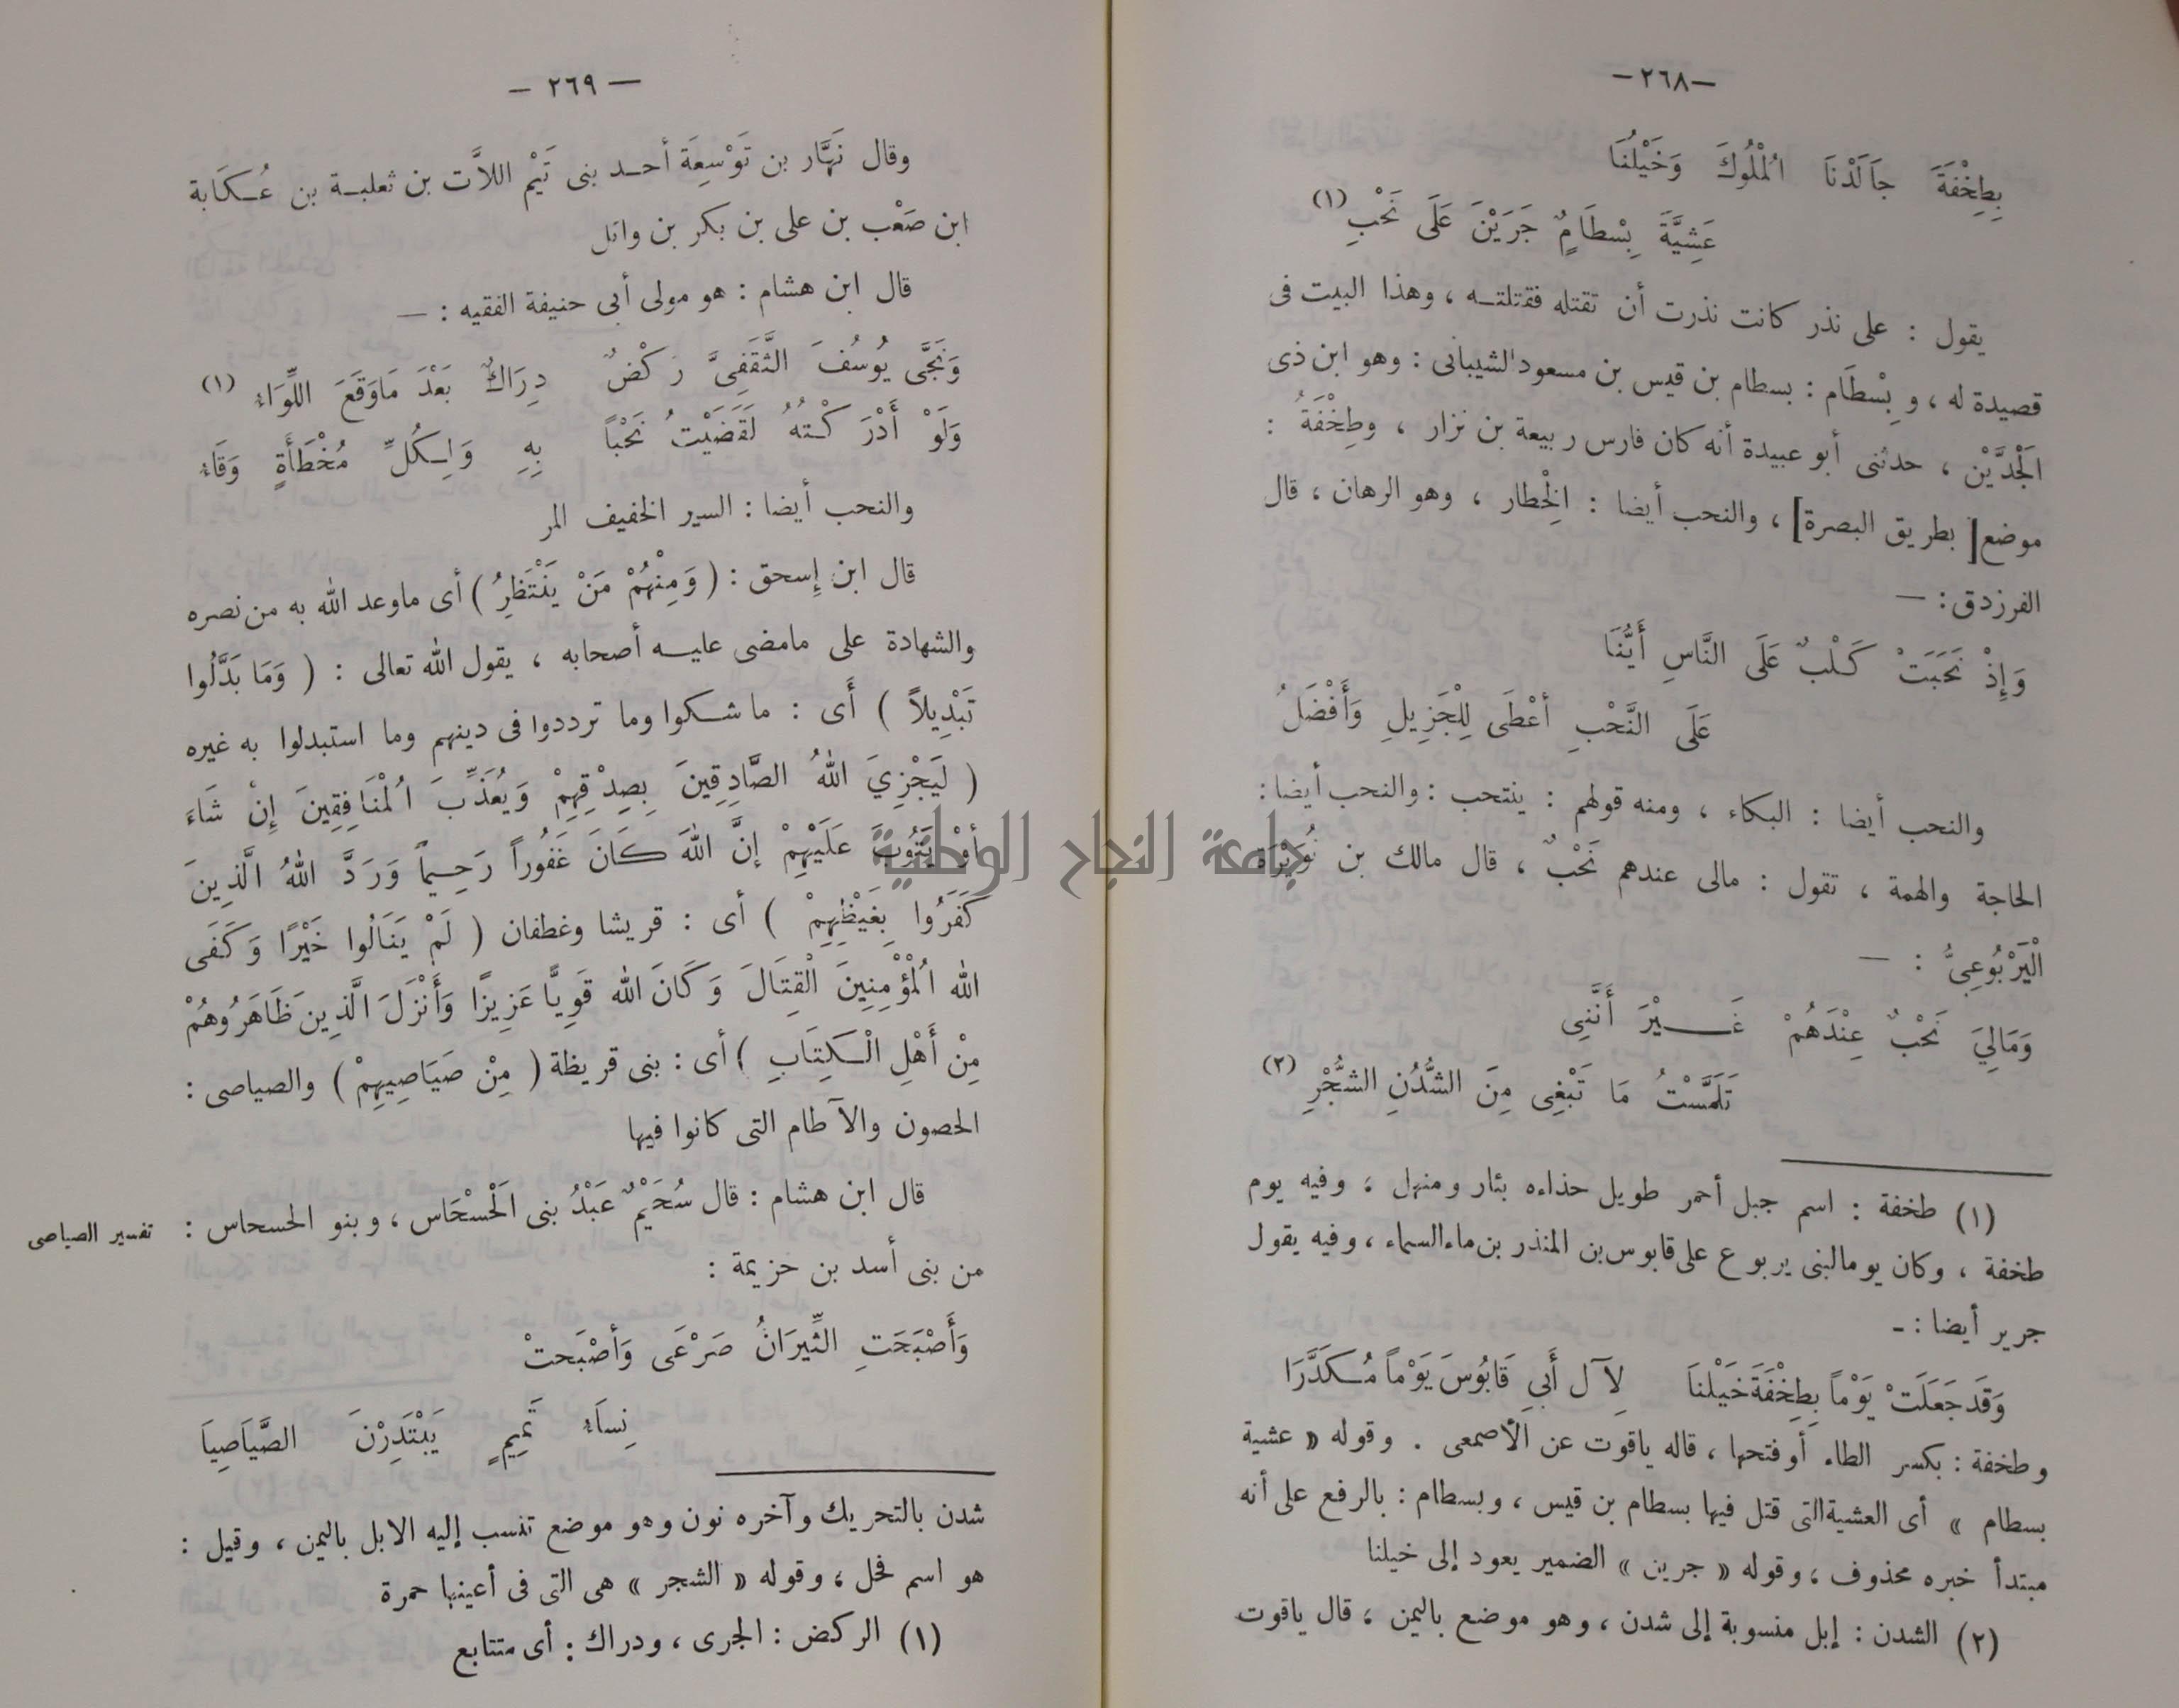 —٢٦٨—
بِطِخْفَةَ جاَلَدْنَا اُلْمُلُوكَ وَخَيْلُنَا
عَشِيَّةَ بِسْطَامٌ جَرَيْنَ عَلَى نَحْبِ (١)
يقول : على نذر كانت نذرت أن تقتله فقتلتـه ، وهذا البيت فى
قصيدة له ، و بِسْطَام : بسطام بن قيس بن مسعود الشيبانى : وهو ابن ذى
اَلْجَدَّيْن ، حدثنى أبو عبيدة أنه كان فارس ربيعة بن نزار ، وطِخْفَةُ :
موضع [ بطريق البصرة ] ، والنحب أيضا : اِلْخطار ، وهو الرهان ، قال
الفرزدق : —
وَإِذْ نَحَبَتْ كَـلْبٌ عَلَى النَّاسِ أَيُّنَا
عَلَى النَّحْبِ أعْطَى لِلْجَزِيلِ وَأَفْضَلُ
والنحب أيضا : البكاء ، ومنه قولهم : ينتحب : والنحب أيضا :
الحاجة والهمة ، تقول : مالى عندهم نَحْبٌ ، قال مالك بن نُوَيْرَة
الْيَرْبُوعِيُّ : —
وَمَالِيَ نَحْبٌ عِنْدَهُمْ غَـــيْرَ أَنَّنِى
تَلَمَّسْتُ مَا تَبْغِى مِنَ الشُّدُنِ الشُّجْرِ (٢)
(١) طخفة : اسم جبل أحمر طويل حذاءه بئار ومنهل ، وفيه يوم
طخفة ، وكان يوما لبنى يربوع على قابوس بن المنذر بن ماء السماء ، وفيه يقول
جرير أيضا : ـ
وَقَد جَعَلَتْ يَوْماً بِطِخْفَةَ خَيْلُناَ لِآ ل أَبِي قَابُوسَ يَوْماً مُـكَدَّرَا
وطخفة : بكسر الطاء أو فتحها ، قاله ياقوت عن الأصمعى . وقوله « عشية
بسطام » أى العشية التى قتل فيها بسطام بن قيس ، وبسطام : بالرفع على أنه
مبتدأ خبره محذوف ، وقوله « جرين » الضمير يعود إلى خيلنا
(٢) الشدن : إبل منسوبة إلى شدن ، وهو موضع باليمن ، قال ياقوت
— ٢٦٩ —
وقال نَهَّار بن تَوْسِعَة أحـد بنى تَيْم اللاَّت بن ثعلبـة بن عُـكَابة
ابن صَعْب بن على بن بكر بن وائل
قال ابن هشام : هو مولى أبى حنيفة الفقيه : —
وَنَجَّى يُوسُفَ الثَّقَفِىَّ رَكْضٌ دِرَاكٌ بَعْدَ مَاوَقَعَ اللِّوَاءُ (١)
وَلَوْ أَدْرَ كْـتُهُ لَقَضَيْتُ نَحْباً بِهِ وَلِـكُلِّ مُخْطَأَةٍ وَقَاءُ
والنحب أيضا : السير الخفيف المر
قال ابن إسحق : ( وَمِنْهُمْ مَنْ يَنْتَظِرُ ) أى ماوعد الله به من نصره
والشهادة على مامضى عليـه أصحابه ، يقول الله تعالى : ( وَمَا بَدَّلُوا
تَبْدِيلاً ) أَى : ما شـكوا وما ترددوا فى دينهم وما استبدلوا به غيره
( لَيَجْزِيَ اللهُ الصَّادِقِينَ بِصِدْقِهِمْ وَيُعَذِّبَ اُلْمنَافِقِينَ إِنْ شَاءَ
أوْ يَتُوبَ عَلَيْهِمْ إنَّ اللهَ كَانَ غَفُوراً رَحِيماً وَرَدَّ اللهُ الَّذِينَ
كَفَرُوا بِغَيْظِهِمْ ) أى : قريشا وغطفان ( لَمْ يَنَالُوا خَيْرًا وَكَفَى
الله اُلْمؤْمِنِينَ الْقِتَالَ وَكَانَ الله قَوِيًّا عَزِيزًا وَأَنْزَلَ الَّذِينَ ظَاهَرُوهُمْ
مِنْ أَهْلِ الْـكِتَابِ ) أى : بنى قريظة ( مِنْ صَيَاصِيهِمْ ) والصياصى :
الحصون والآطام التى كانوا فيها
قال ابن هشام : قال سُحَيْمٌ عَبْدُ بنى اَلْحسْحَاس ، وبنو الحسحاس :
تفسير الصياصى
من بنى أسد بن خزيمة :
وَأَصْبَحَتِ الثِّيرَانُ صَرْعَى وَأصْبَحتْ
نِسَاءُ تَمِيمٍ يَبْتَدِرْنَ الصَّيَاصِيَا
شدن بالتحريك وآخره نون وهو موضع تنسب إليه الابل باليمن ، وقيل :
هو اسم فحل ، وقوله « الشجر » هى التى فى أعينها حمرة
(١) الركض : الجرى ، ودراك : أى متتابع
جامعة النجاح الوطنية